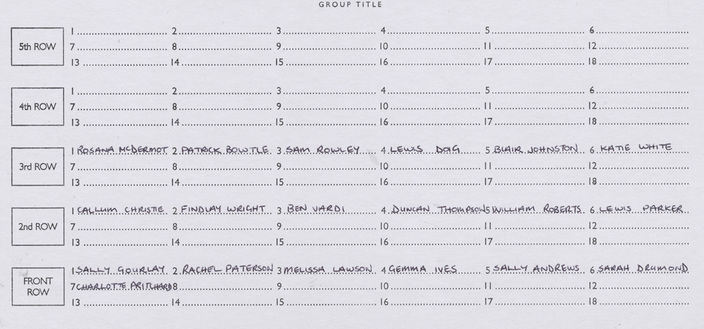 GROUP TITLE
5th ROW
1 2 3 4 5 6
7 8 9 10 11 12
13 14 15 16 17 18
4th ROW
1 2 3 4 5 6
7 8 9 10 11 12
13 14 15 16 17 18
3rd ROW
1 ROSANA McDERMOT 2 PATRICK BOWTLE 3 SAM ROWLEY 4 LEWIS DOIG 5 BLAIR JOHNSTON 6 KATIE WHITE
7 8 9 10 11 12
13 14 15 16 17 18
2nd ROW
1 CALLUM CHRISTIE 2 FINDLAY WRIGHT 3 BEN VARDI 4 DUNCAN THOMPSON 5 WILLIAM ROBERTS 6 LEWIS PARKER
7 8 9 10 11 12
13 14 15 16 17 18
FRONT ROW
1 SALLY GOURLAY 2 RACHEL PATERSON 3 MELISSA LAWSON 4 GEMMA IVES 5 SALLY ANDREWS 6 SARAH DRUMOND
7 CHARLOTTE PRITCHARD 8 9 10 11 12
13 14 15 16 17 18